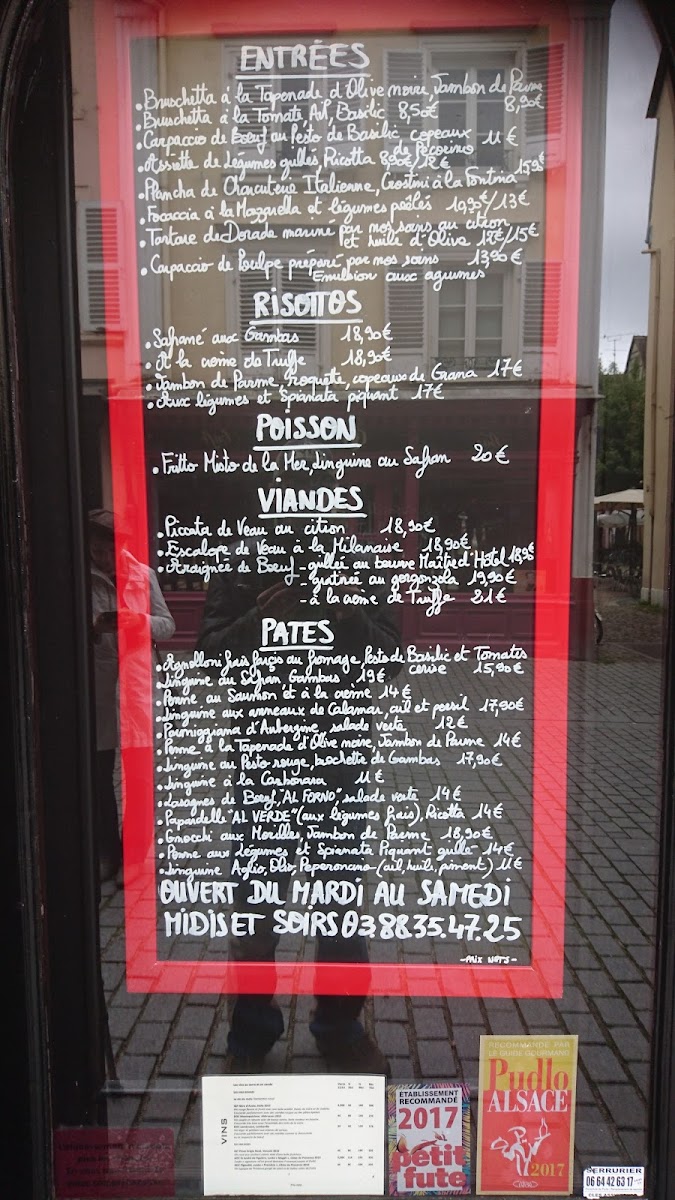 ENTRÉES
• Bruschetta à la Tapenade d'Olive noire, Jambon de Parme 8,90€
• Bruschetta à la Tomate, Ail, Basilic 8,50€
• Carpaccio de Boeuf au Pesto de Basilic copeaux de Pecorino 11€
• Assiette de Légumes grillés, Ricotta 8,90€/12€
• Plancha de Charcuterie Italienne, Crostini à la Fontina 15,90
• Focaccia à la Mozzarella et légumes poêlés 10,90/13€
• Tartare de Dorade mariné par nos soins au citron et huile d'Olive 12€/15€
• Carpaccio de Poulpe préparé par nos soins 13,90€
Emulsion aux agrumes
RISOTTOS
• Safrané aux Gambas 18,90€
• A la crème de Truffe 18,90€
• Jambon de Parme, roquette, copeaux de Grana 17€
• Aux légumes et Spianata piquant 17€
POISSON
• Fritto Misto de la Mer, Linguine au Safran 20€
VIANDES
• Piccata de Veau au citron 18,90€
• Escalope de Veau à la Milanaise 18,90€
• Araignée de Boeuf - grillée au beurre Maître d'Hôtel 18,90
- gratinée au gorgonzola 19,90€
- à la crème de Truffe 21€
PATES
• Agnolloni frais farçis au fromage, Pesto de Basilic et Tomates cerise 15,90€
• Linguine au Safran Gambas 19€
• Penne au Saumon et à la crème 14€
• Linguine aux anneaux de Calamar, ail et persil 17,90€
• Parmiggiana d'Aubergine, salade verte 12€
• Penne à la Tapenade d'Olive noire, Jambon de Parme 14€
• Linguine au Pesto rouge, brochette de Gambas 17,90€
• Linguine à la Carbonara 11€
• Lasagnes de Boeuf "AL FORNO", salade verte 14€
• Papardelle "AL VERDE" (aux légumes frais), Ricotta 14€
• Gnocchi aux Morilles, Jambon de Parme 18,90€
• Penne aux Légumes et Spianata Piquant grillé 14€
• Linguine Aglio, Olio, Peperoncino (ail, huile, piment) 11€
OUVERT DU MARDI AU SAMEDI
MIDIS ET SOIRS 03.88.35.47.25
- PRIX NETS -
VINS
ETABLISSEMENT
RECOMMANDÉ
2017
petit
futé
RECOMMANDÉ PAR
LE GUIDE GOURMAND
Pudlo
ALSACE
2017
SERRURIER
06 64 42 63 17